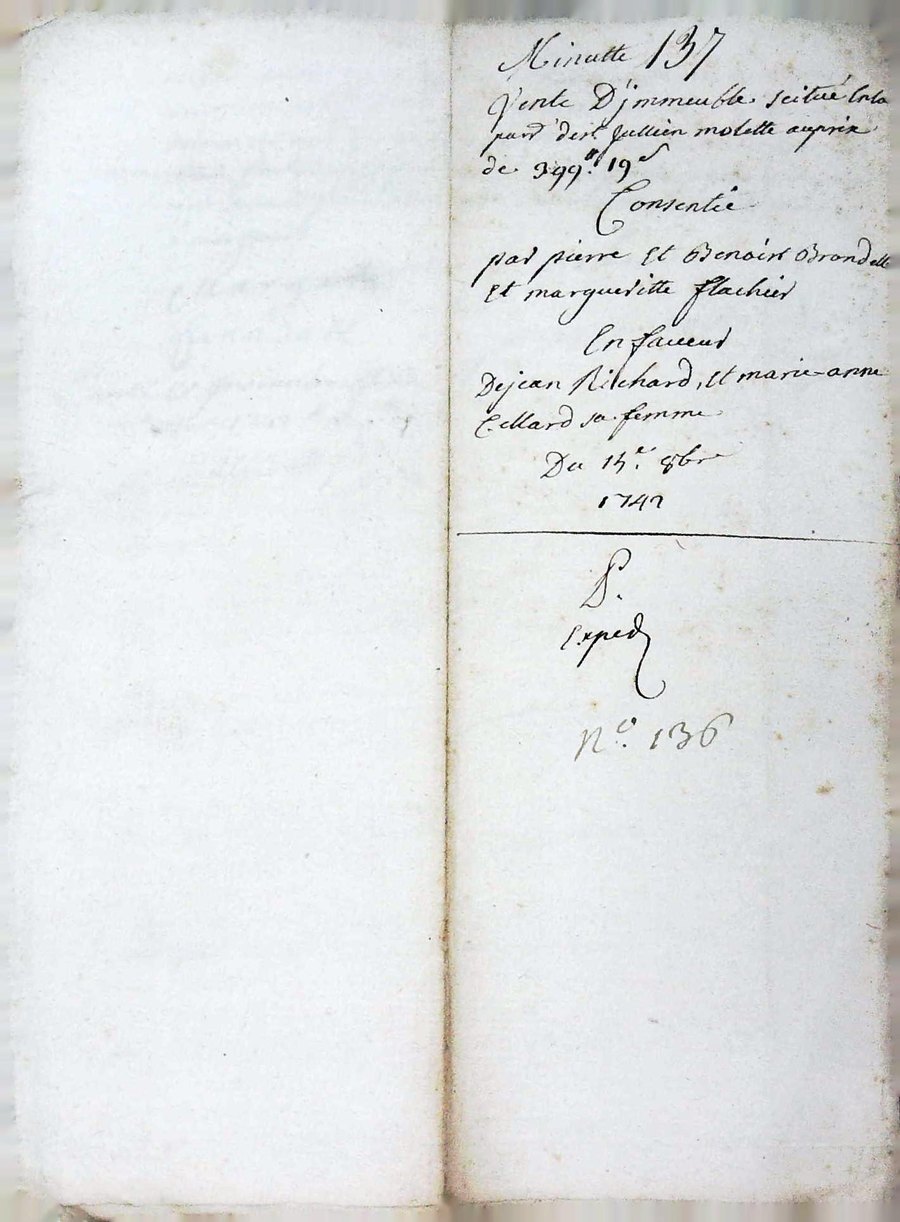 Minutte 137
Vente D'jmmeuble scitué En la
par.d de st Jullien molette au prix
de 399.# 19 s
Consentie
par pierre Et Benoist Brondelle
Et margueritte flachier
En faveur
De jean Richard, Et marie-anne
Cellard sa femme
Du 15.e 8bre
1742
Exped
N.o 136